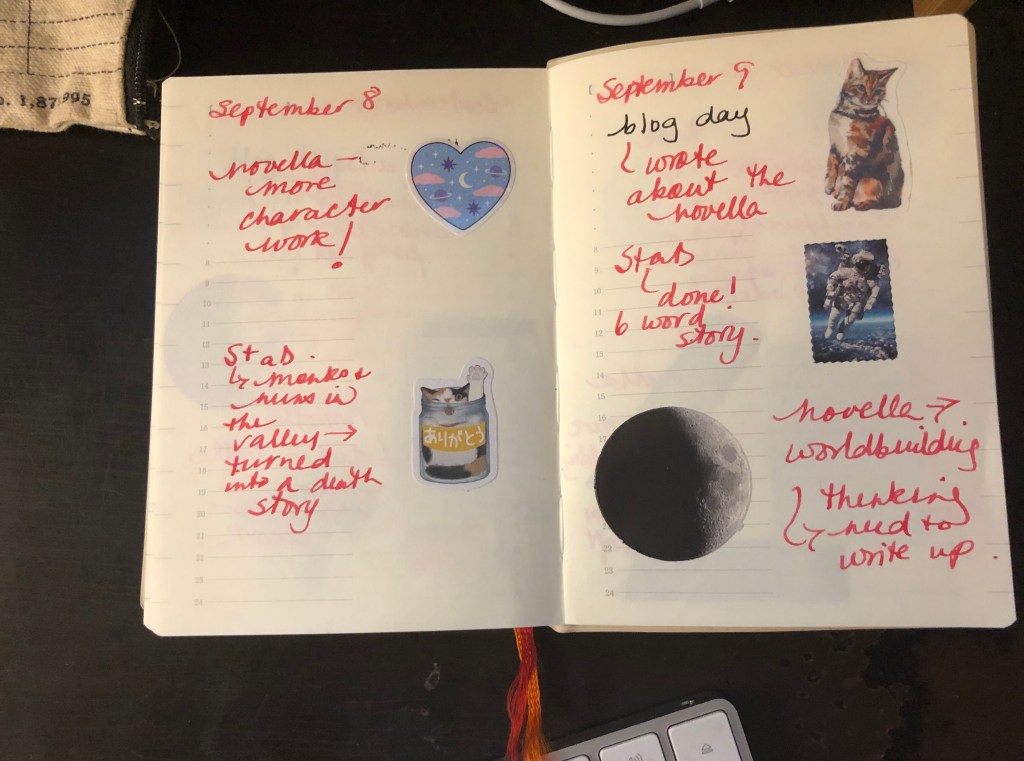 o. 1,87 995
September 8
novella —
more
character
work!
8
9
10
11
12
Stab.
↳ monks &
nuns in
the
valley →
turned
into a death
story
13
14
15
16
17
18
19
20
21
22
23
24
ありがとう
September 9
blog day
wrote
about the
novella
Stab
done!
6 word
story.
8
9
10
11
12
13
14
15
16
17
novella →
worldbuilding
thinking
↳ need to
write up.
22
23
24